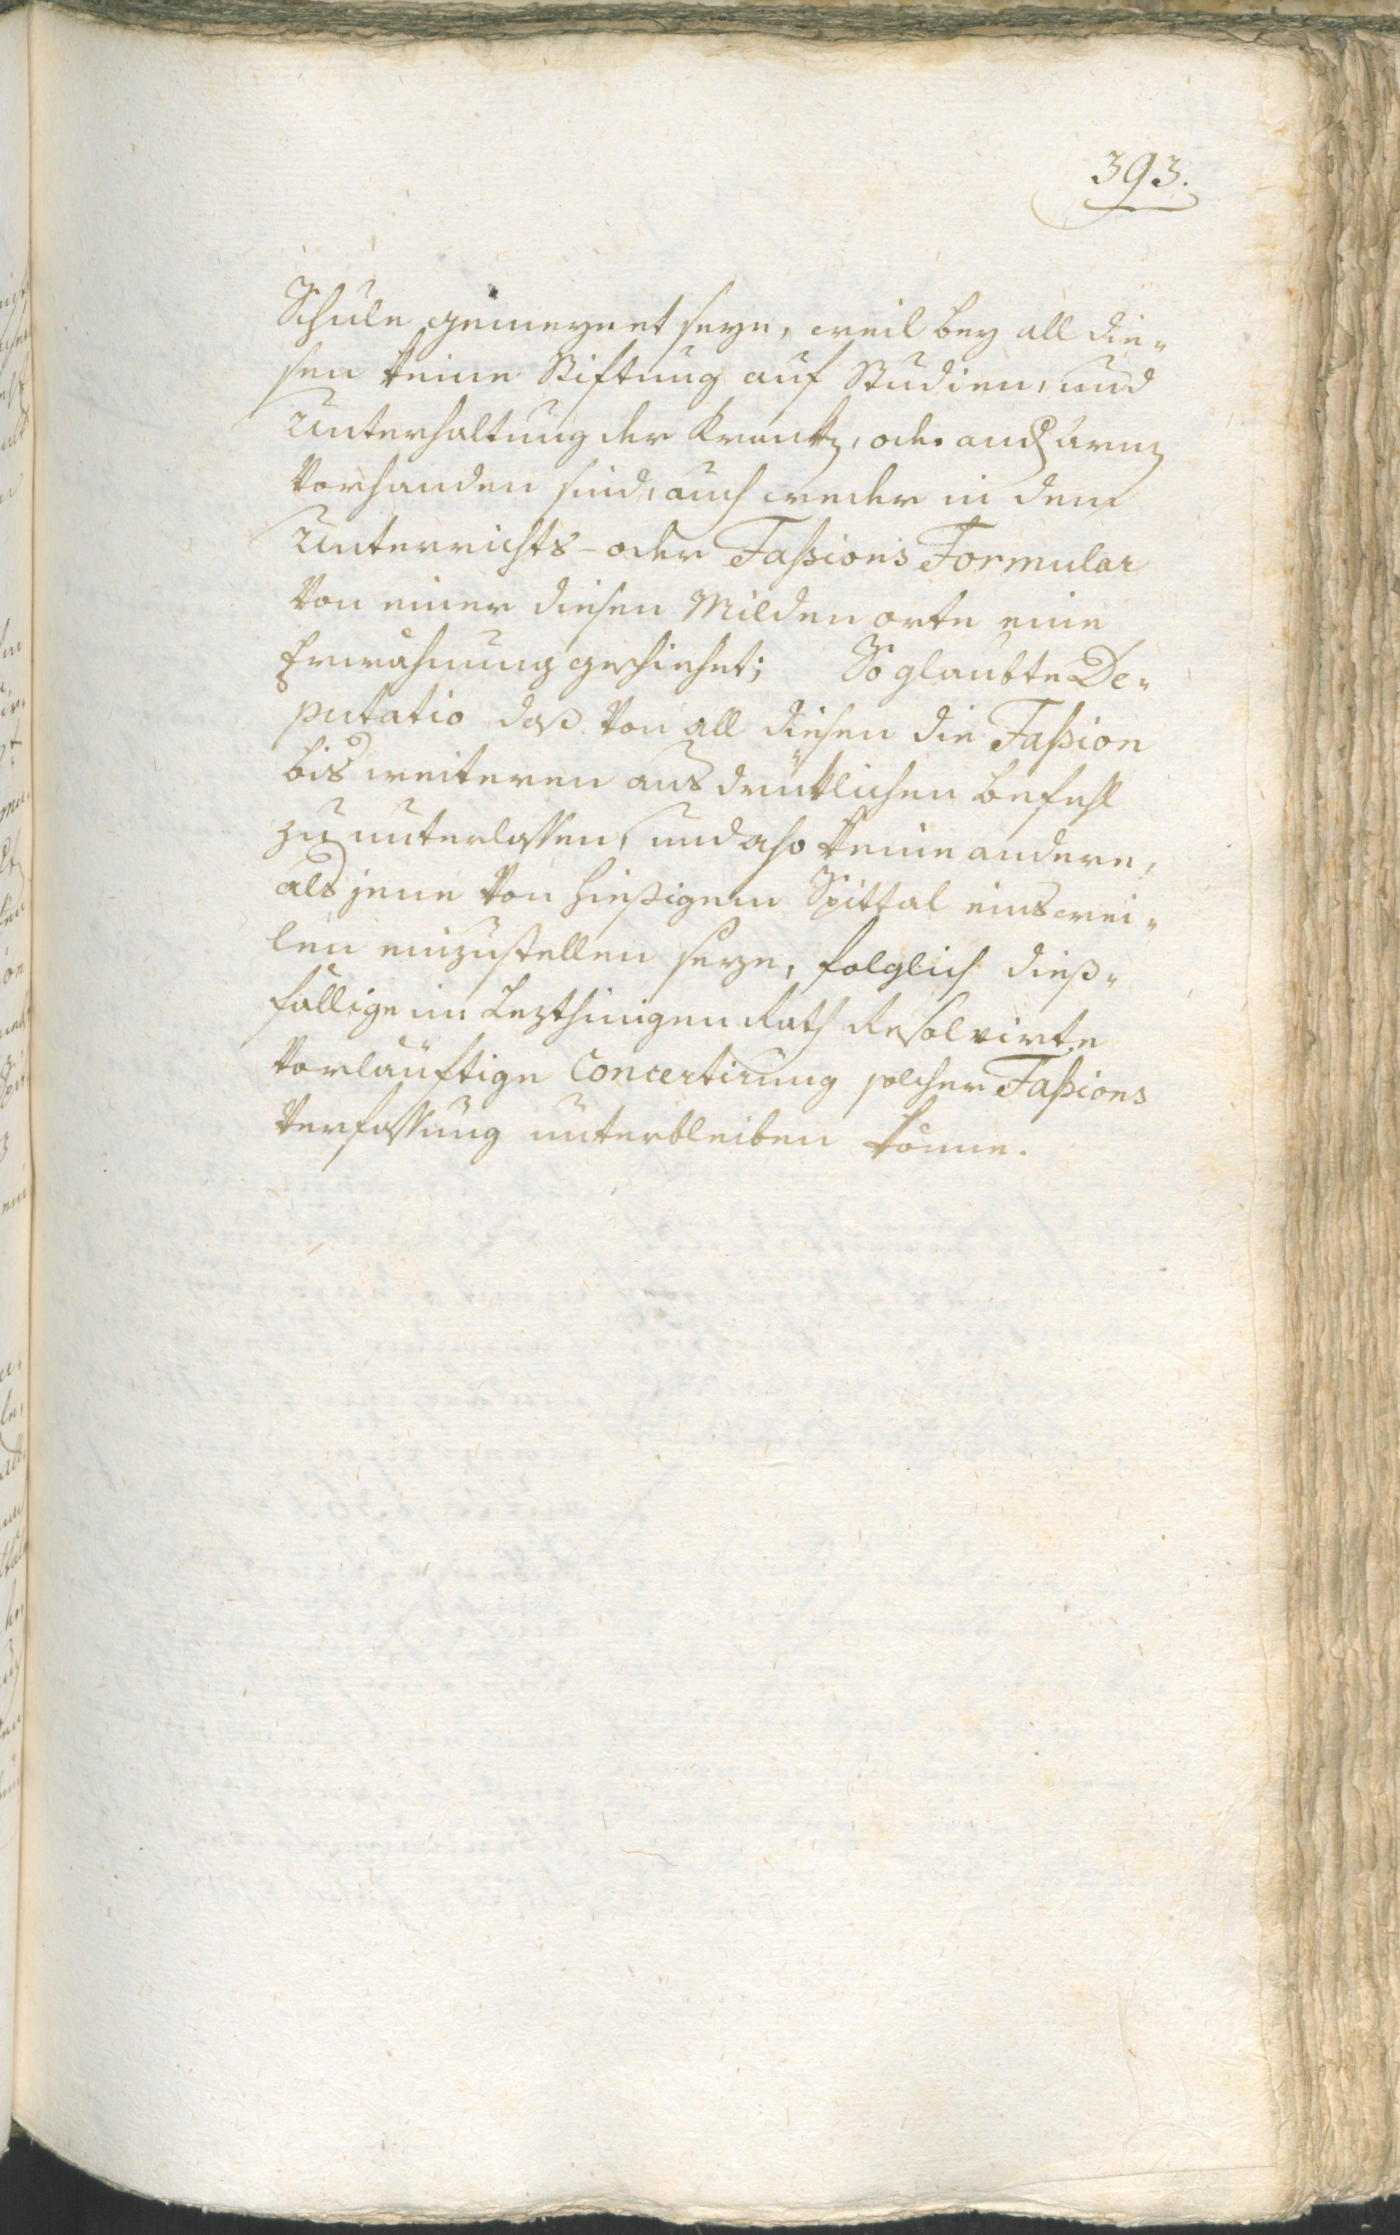 393.
Schule gemeynet seye, weil bey all die„
sen keine Stiftung auf Studien, und
Unterhaltung der Kranken, oder auch armen
Vorhanden sind, auch weder in dem
Unterrichts- oder Faßions Formular
Von einer diesen Milden orte eine
Erwähnung geschiehet; So glaubte De„
putatio daß Von all diesen die Faßion
bis weiteren ausdrüklichen befehl
zu unterlassen, und also keine andere,
als jene Von hießigem Spittal einswei„
len einzustellen seye, folglich dieß„
fällige im Lezthinigen Rath Resolvirte
Vorläuftige Concertirung solcher Faßions
Verfassung unterbleiben könne.